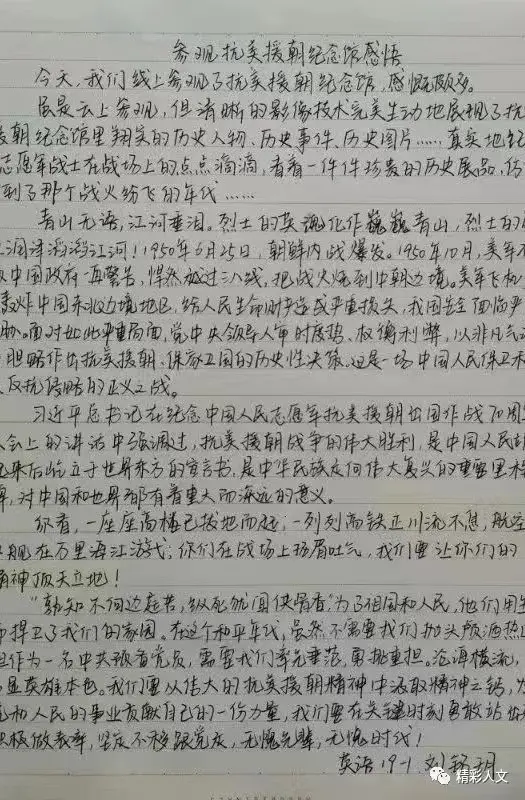 参观抗美援朝纪念馆感悟
今天,我们线上参观了抗美援朝纪念馆,感慨颇多。
虽是云上参观,但清晰的影像技术完美生动地展现了抗
援朝纪念馆里翔实的历史人物、历史事件、历史图片……真实地
志愿军战士在战场上的点点滴滴,看着一件件珍贵的历史展品,仿
到了那个战火纷飞的年代……
青山无语,江河垂泪。烈士的英魂化作巍巍青山,烈士的
润泽滔滔江河!1950年6月25日,朝鲜内战爆发。1950年10月,美军不
中国政府再警告,悍然越过三八线,把战火烧到中朝边境。美军飞机
轰炸中国东北边境地区,给人民生命财产造成严重损失,我国安全面临严
胁。面对如此严重局面,党中央领导人审时度势、权衡利弊,以非凡气
胆略作出抗美援朝、保家卫国的历史性决策。这是一场中国人民保卫和
反抗侵略的正义之战。
习近平总书记在纪念中国人民志愿军抗美援朝出国作战70周
大会上的讲话中强调过,抗美援朝战争的伟大胜利,是中国人民
起来后屹立于世界东方的宣言书,是中华民族走向伟大复兴的重要里程
碑,对中国和世界都有着重大而深远的意义。
你看,一座座高楼已拔地而起,一列列高铁正川流不息,航空
舰在万里海江游弋;你们在战场上扬眉吐气,我们要让你们的
精神顶天立地!
"孰知不向边庭苦,纵死犹闻侠骨香"为了祖国和人民,他们用生
捍卫了我们的家园。在这个和平年代,虽然不需要我们抛头颅洒热
但作为一名中共预备党员,需要我们率先垂范,勇挑重担。沧海横流,
显英雄本色。我们要从伟大的抗美援朝精神中汲取精神之钙,为
和人民的事业贡献自己的一份力量,我们要在关键时刻勇敢站
积极做表率,坚定不移跟党走,无愧先辈,无愧时代!
英语19-1 刘
精彩人文